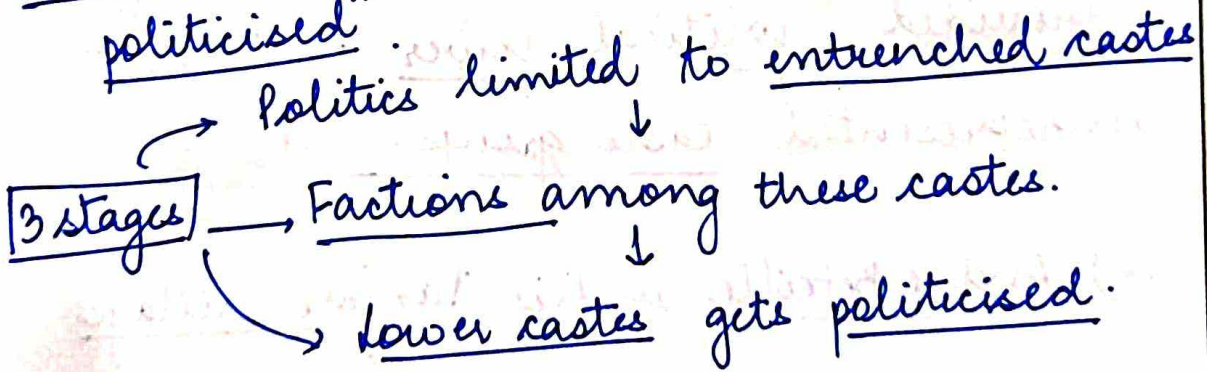 politicised".
Politics limited to entrenched castes
↓
3 stages → Factions among these castes.
↓
Lower castes gets politicised.